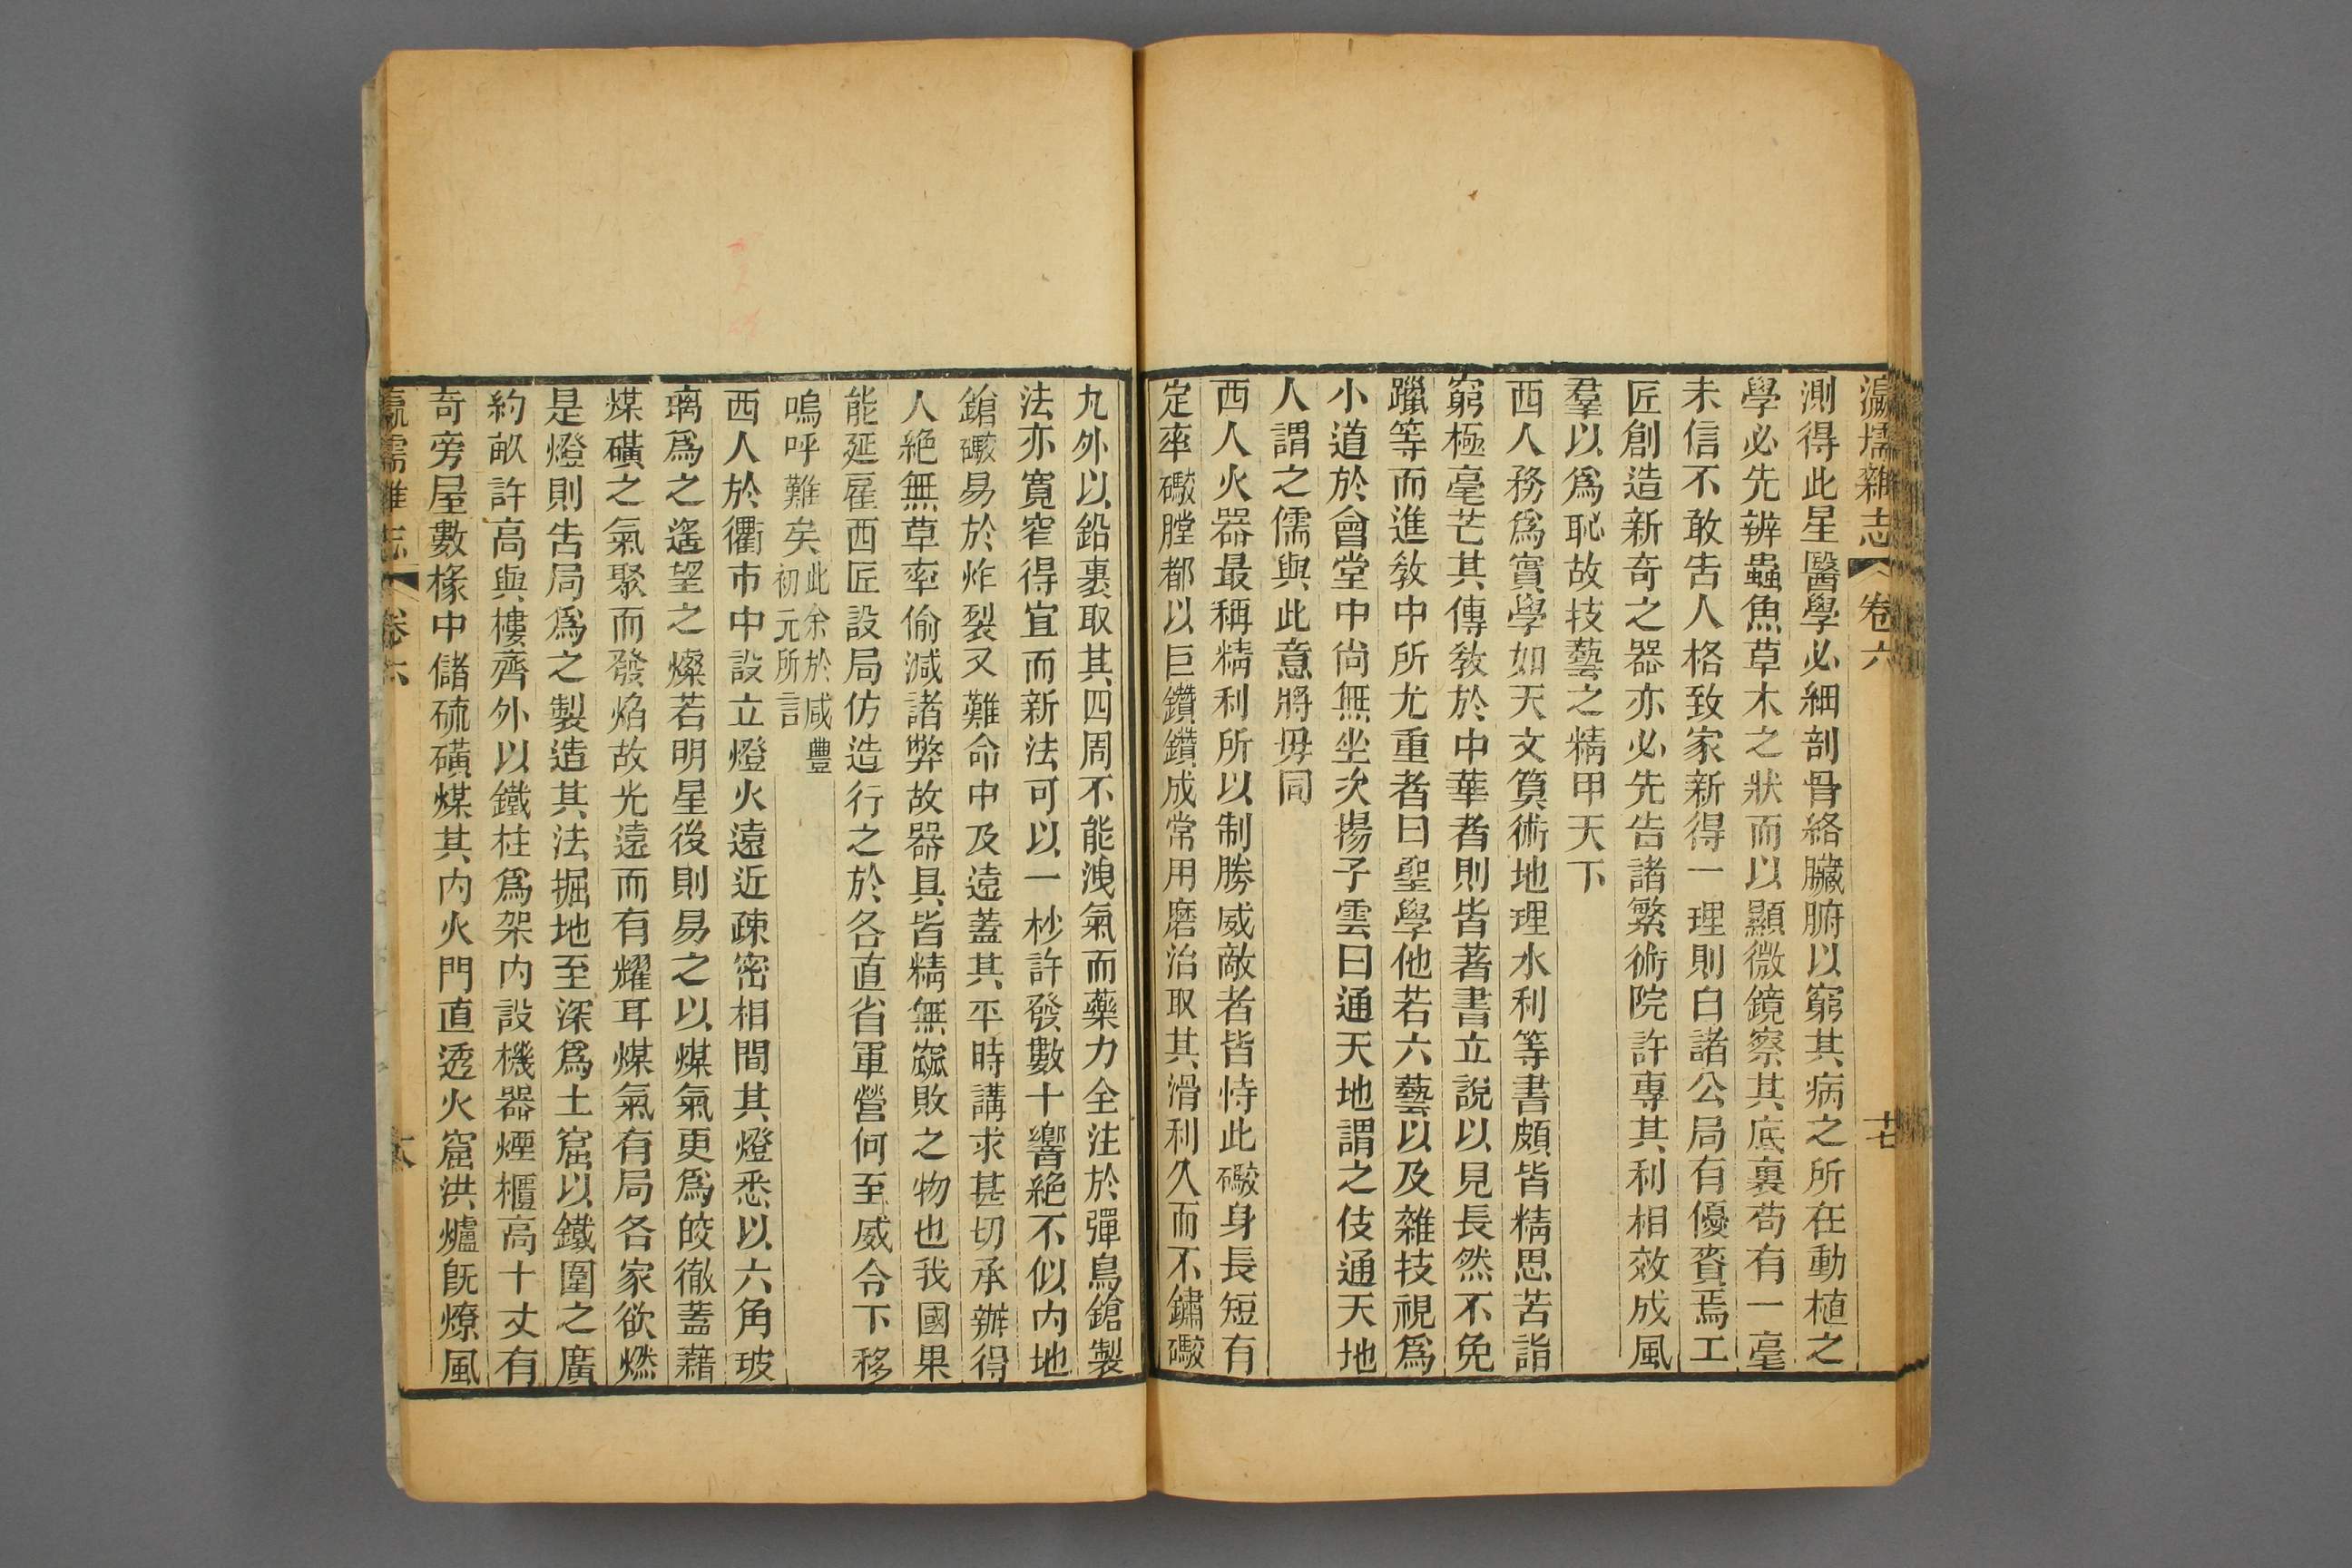 瀛壖雜志 卷六 十七
測得此星醫學必細剖骨絡臟腑以窮其病之所在動植之
學必先辨蟲魚草木之狀而以顯微鏡察其底裏苟有一毫
未信不敢告人格致家新得一理則白諸公局有優賚焉工
匠創造新奇之器亦必先告諸繁術院許專其利相效成風
羣以爲恥故技藝之精甲天下
西人務爲實學如天文算術地理水利等書頗皆精思苦詣
窮極毫芒其傳敎於中華者則皆著書立說以見長然不免
躐等而進敎中所尤重者曰聖學他若六藝以及雜技視爲
小道於會堂中尙無坐次揚子雲曰通天地謂之伎通天地
人謂之儒與此意將毋同
西人火器最稱精利所以制勝威敵者皆恃此礮身長短有
定率礮膛都以巨鑽鑽成常用磨治取其滑利久而不鏽礮
丸外以鉛裹取其四周不能洩氣而藥力全注於彈鳥鎗製
法亦寬窄得宜而新法可以一杪許發數十響絶不似内地
鎗礮易於炸裂又難命中及遠蓋其平時講求甚切承辦得
人絶無草率偷減諸弊故器具皆精無窳敗之物也我國果
能延雇西匠設局仿造行之於各直省軍營何至威令下移
嗚呼難矣此余於咸豐初元所言
西人於衢市中設立燈火遠近疎密相間其燈悉以六角玻
璃爲之遙望之燦若明星後則易之以煤氣更爲皎徹蓋藉
煤磺之氣聚而發焰故光遠而有耀耳煤氣有局各家欲燃
是燈則吿局爲之製造其法掘地至深爲土窟以鐵圍之廣
約畝許高與樓齊外以鐵柱爲架内設機器煙櫃高十丈有
奇旁屋數椽中儲硫磺煤其内火門直透火窟洪爐旣燎風
瀛壖雜志 卷六